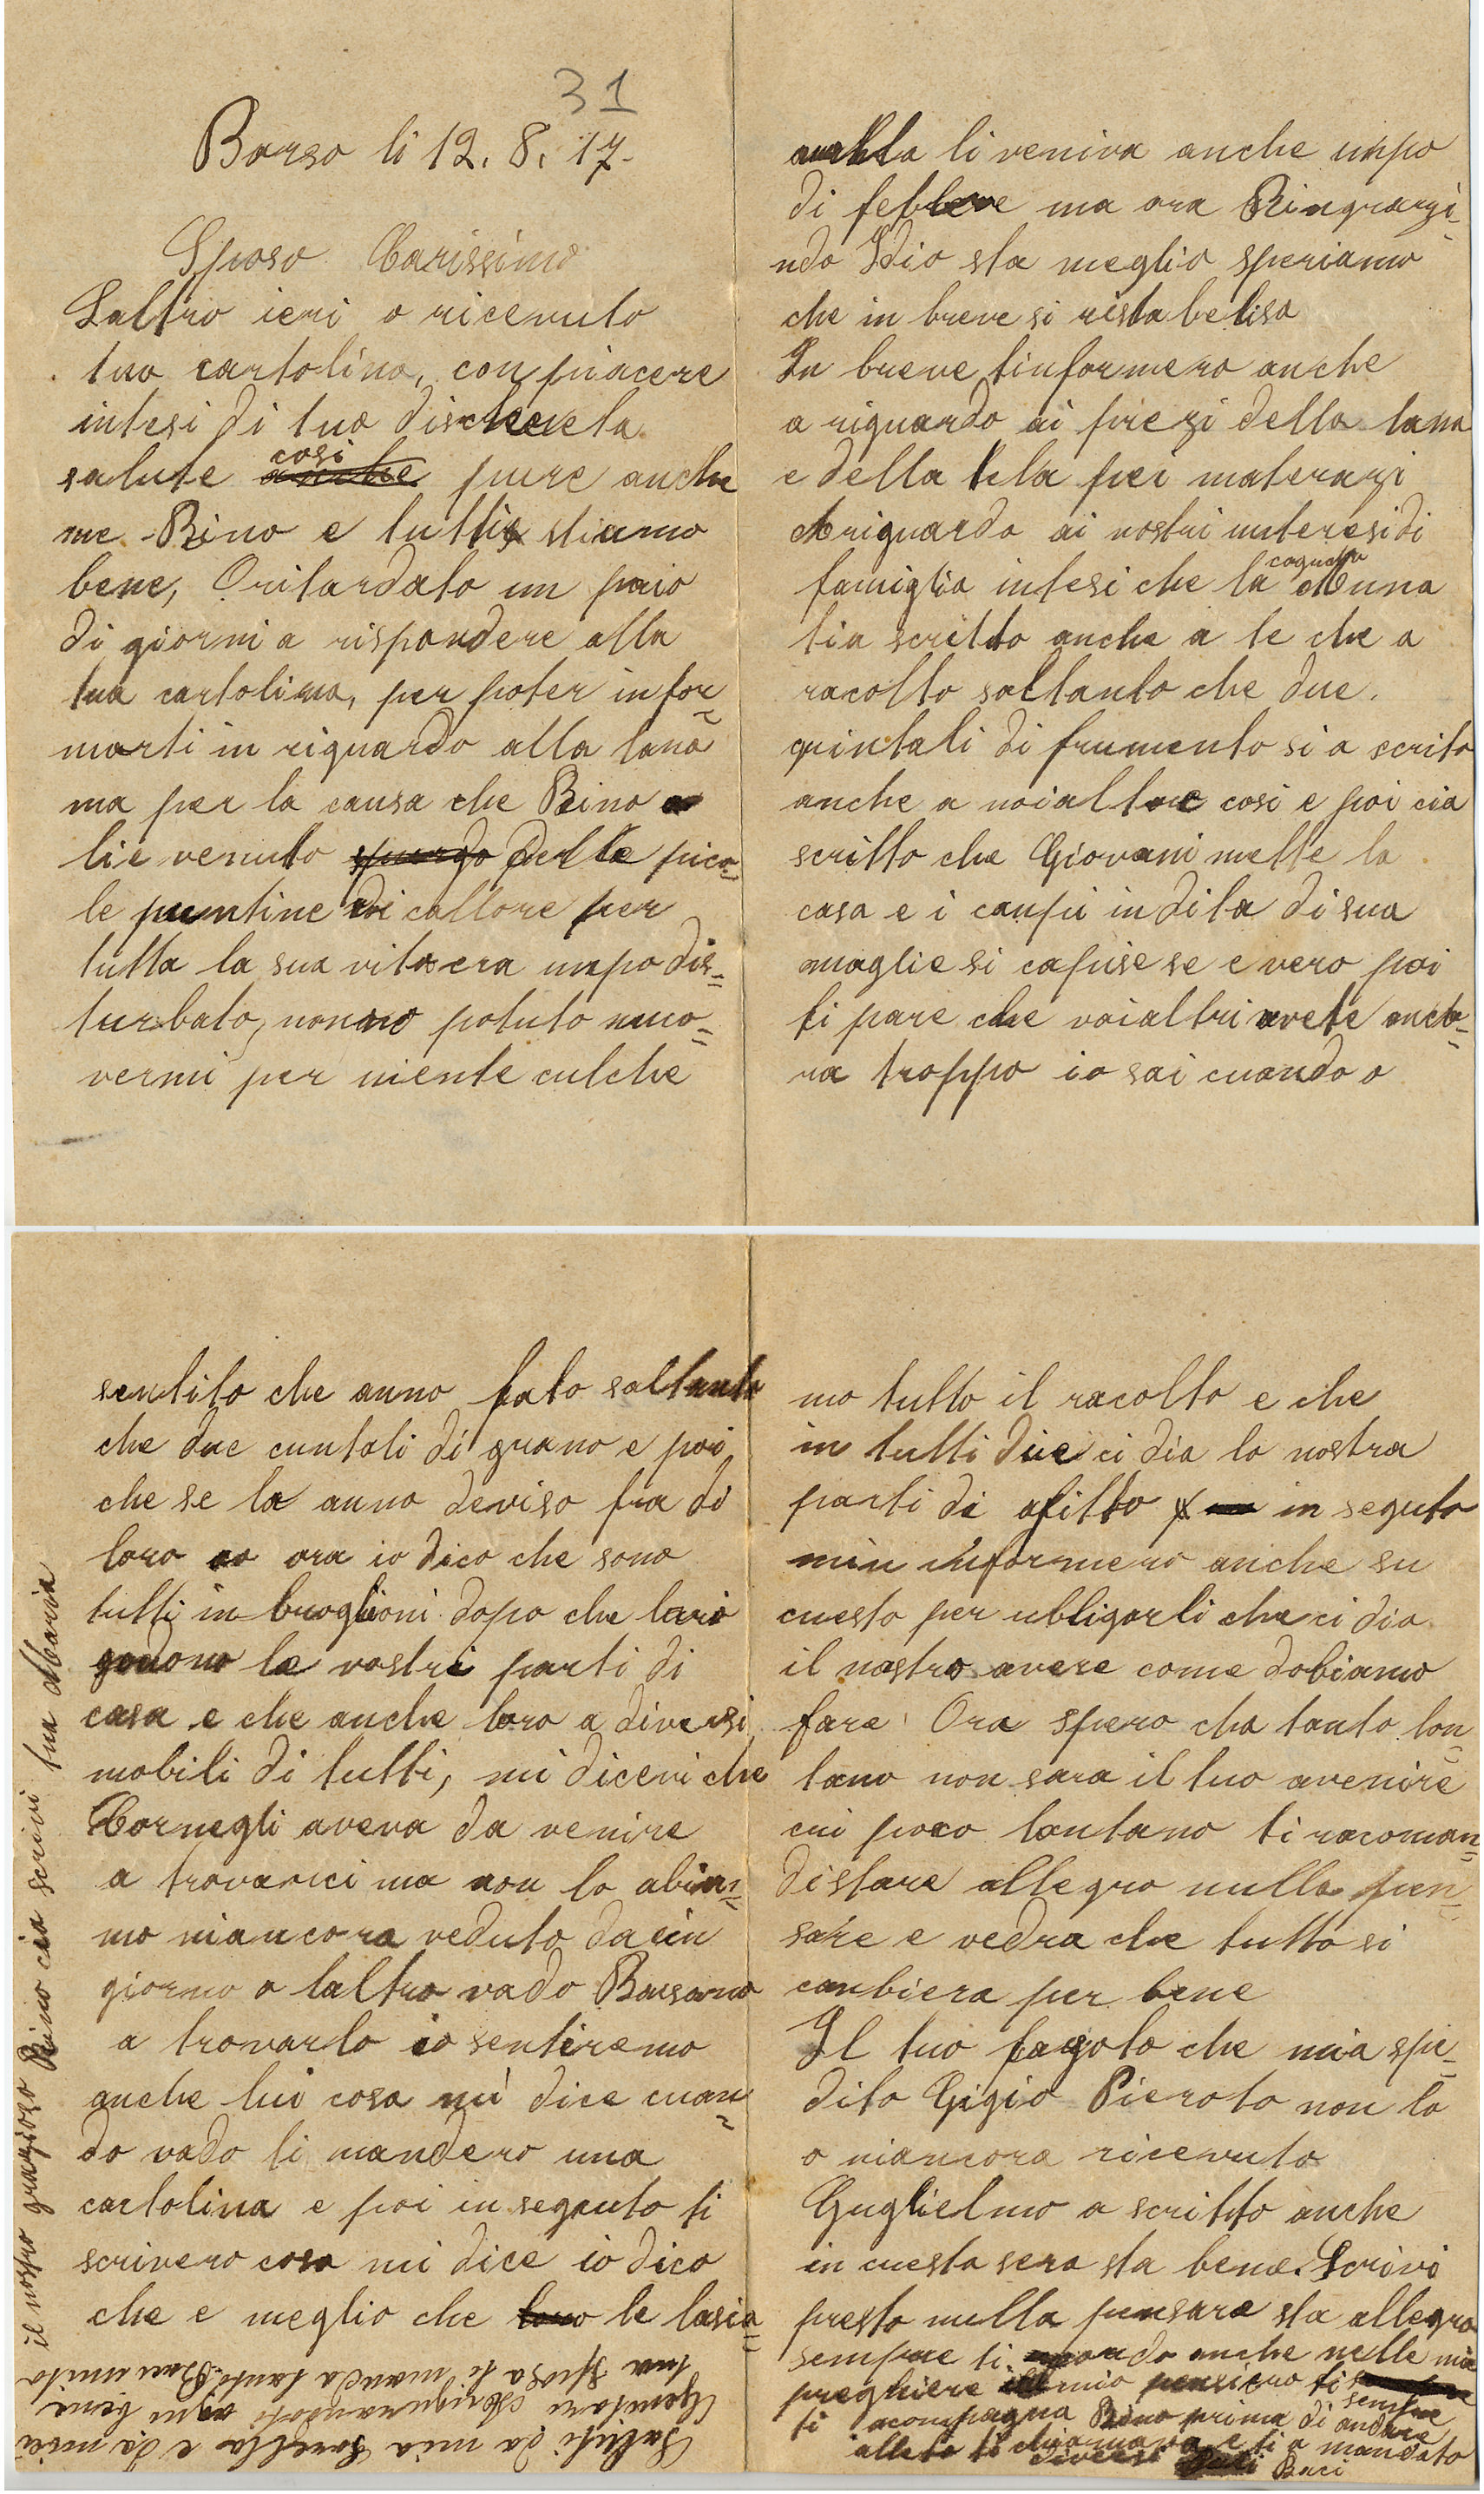 31
Borso li 12. 8. 17.
Sposo Carissimo
Laltro ieri o ricevuto
tua cartolina, con piacere
intesi di tua discheveta
salute cosi pure anche
me Rino e tutti stiamo
bene, Oritardato un paio
di giorni a rispondere alla
tua cartolina, per poter infor=
marti in riguardo alla lana
ma per la causa che Rino
lie venuto delle pico=
le puntine di callore per
tutta la sua vita era unpo dis=
turbato, non o potuto muo=
vermi per niente culche
li veniva anche unpo
di feblere ma ora Ringrazi=
ndo Idio sta meglio speriamo
che in breve si ristabelisa
In breve tinformero anche
a riguardo ai prezi della lana
e della tela pei materazi
Ariguardo ai nostri interesi di
famiglia intesi che la cognatta Nuna
tia scritto anche a te che a
racolto soltanto che due
quintali di frumento si a scrito
anche a noialtre cosi e poi cia
scritto che Giovani mette la
casa e i canpi in dita di sua
moglie si capise se e vero poi
ti pare che voialtri avete anco=
ra troppo io sai cuando o
sentito che anno fato soltanto
che due cuntali di grano e poi
che se la anno deviso fra di
loro ora io dico che sono
tutti in broglioni dopo che loro
godono le vostri parti di
casa e che anche loro a diversi
mobili di tutti, mi dicevi che
Cornegli aveva da venire
a trovarci ma non lo abia=
mo niancora veduto da un
giorno a laltro vado Bassano
a trovarlo io sentiremo
anche lui cosa mi dice cuan=
do vado ti mandero una
cartolina e poi in seguto ti
scrivero cosa mi dice io dico
che e meglio che le lasia=
mo tutto il racolto e che
in tutti due ci dia la nostra
parti di afitto in seguto
min informero anche su
cuesto per ubligarli che ci dia
il nostro avere come dobiamo
fare Ora spero che tanto lon=
tano non sara il tuo avenire
cui poco lontano ti racoman=
di stare allegro nulla pen=
sare e vedra che tutto si
canbiera per bene
Il tuo fagoto che mia spe=
dito Gigio Pieroto non lo
o niancora ricevuto
Guglielmo a scritto anche
in cuesta sera sta bene. Scrivi
presto nulla pensare sta allegro
sempre ti anche nelle mie
preghiere il mio pensiero ti
sempre
ti acompagna Rino prima di andare
alleto ti chiamava e ti a mandato
diversi Baci
Saluti da mia Sorella e da miei
Genitori Augurandoti ogni bene
tua Sposa ti manda tanti Baci unita
il nostro grazioso Rino cia scrivi tua Maria